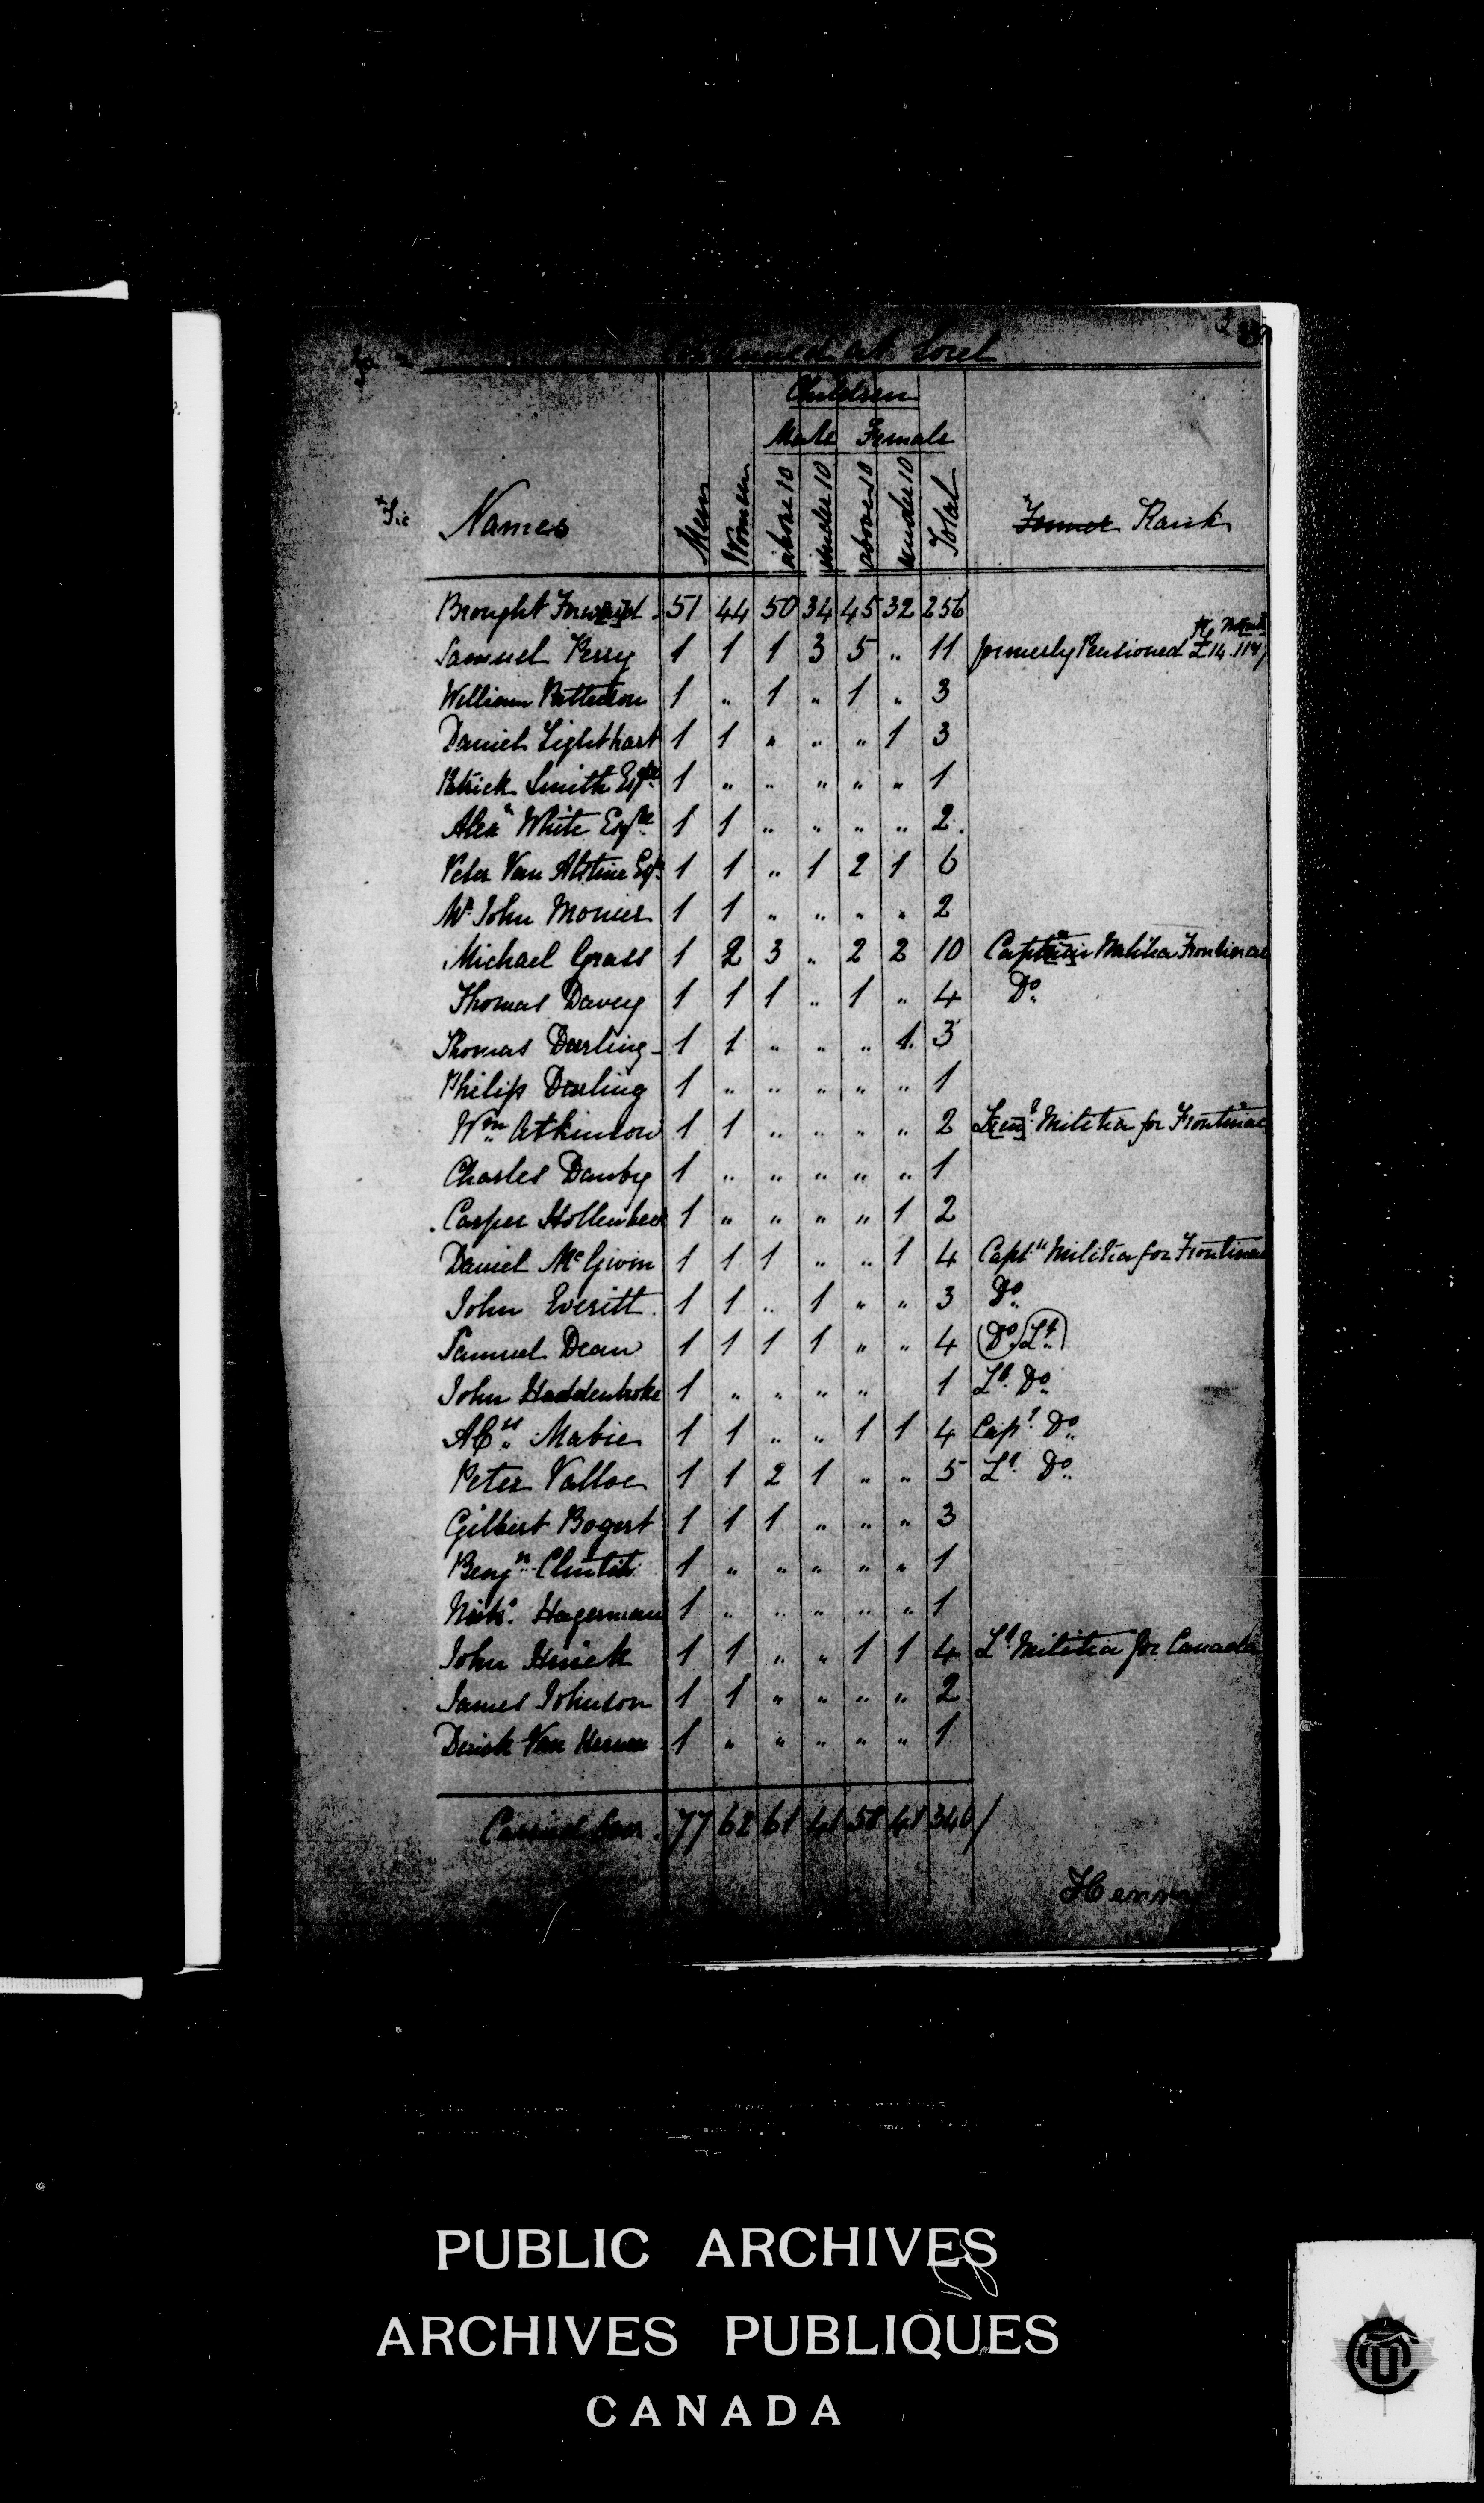 Continued at Sorel
Children
Male Female
x Sic Names Men Women above 10 under 10 above 10 under 10 Total x Former Rank
Brought Forward 51 44 50 34 45 32 256
Samuel Perry 1 1 1 3 5 " 11 formerly Pensioned £14
William Patterson 1 " 1 " 1 " 3
Daniel Lighthart 1 1 " " " 1 3
Patrick Smith Esqre 1 " " " " " 1
Alexr White Esqre 1 1 " " " " 2.
Peter Van Alstine Esqr 1 1 " 1 2 1 6
Mr John Monier 1 1 " " " " 2
Michael Grass 1 2 3 " 2 2 10 Captain Militia Frontinac
Thomas Davey 1 1 1 " 1 " 4 Do
Thomas Darling 1 1 " " " 1. 3
Philip Darling 1 " " " " " 1
Wm Atkinson 1 1 " " " " 2 Militia for Frontinac
Charles Danby 1 " " " " " 1
Casper Hollenbeck 1 " " " " 1 2
Daniel McGivin 1 1 1 " " 1 4 Captn Militia for Frontinac
John Everitt 1 1 " 1 " " 3 Do
Samuel Dean 1 1 1 1 " " 4 (Do) (Lt)
John Huddenbroke 1 " " " " 1 Lt Do
Mabie 1 1 " " 1 1 4 Capt Do
Peter Valloe 1 1 2 1 " " 5 Lt Do
Gilbert Bogert 1 1 1 " " " 3
Benjn 1 " " " " " 1
Hagerman 1 " " " " " 1
John Huick 1 1 " " 1 1 4 Lt Militia for Canada
James Johnson 1 1 " " " " 2
Derick Van 1 " " " " " 1
Carried Over 77 62 61 41 58 41 340/
Henry
PUBLIC ARCHIVES
ARCHIVES PUBLIQUES
CANADA